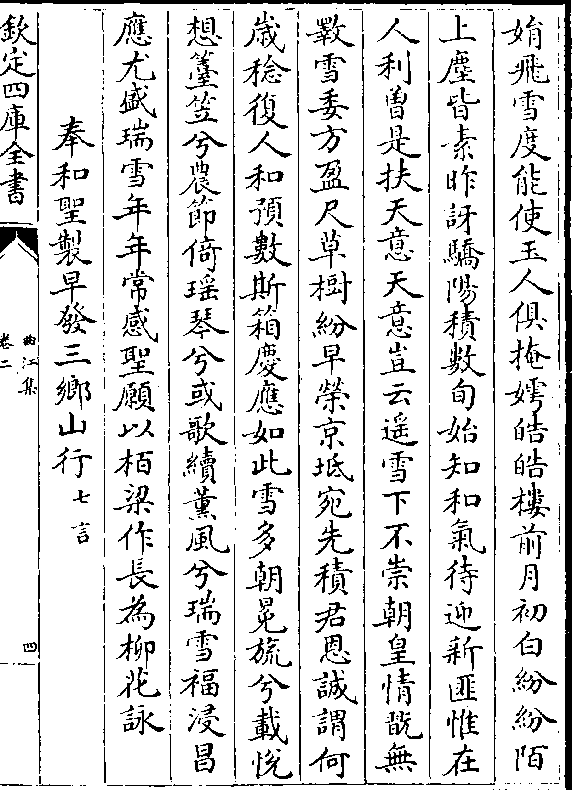 娟飛雪度能使玉人俱掩嫮皓皓樓前月初白紛紛陌
上塵皆素昨訝驕陽積數旬始知和氣待迎新匪惟在
人利曽是扶天意天意豈云遥雪下不崇朝皇情翫無
斁雪委方盈尺草樹紛早榮京坻宛先積君恩誠謂何
歳稔復人和預數斯箱慶應如此雪多朝冕旒兮載悅
想薹笠兮農節倚瑶琴兮或歌續薫風兮瑞雪福浸昌
應尤盛瑞雪年年常感聖願以栢梁作長為柳花詠
奉和聖製早發三鄉山行七言
欽定四庫全書
曲江集
卷二
四